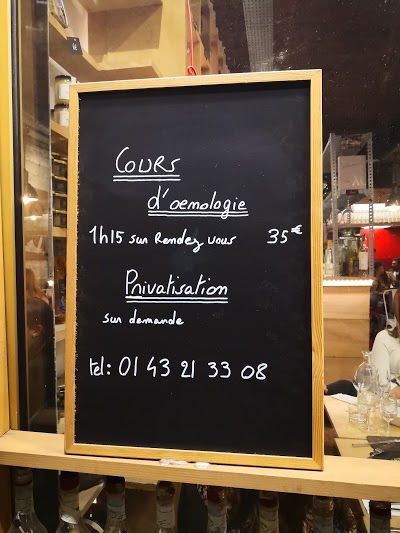 Cours
d'oemologie
1h15 sur Rendez vous 35€
Privatisation
sur demande
tel: 01 43 21 33 08